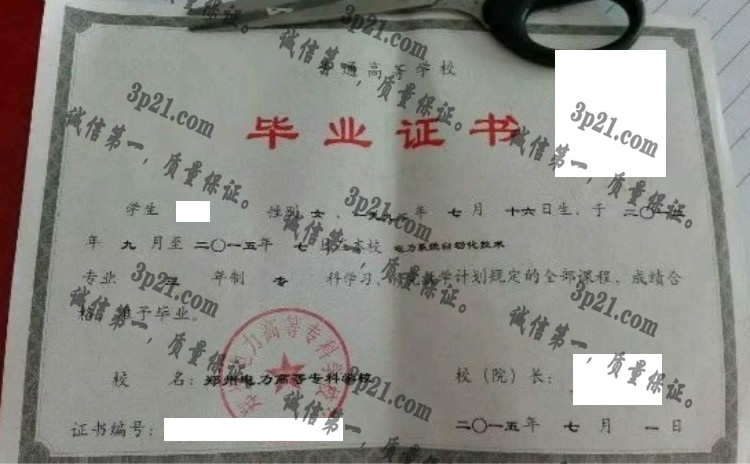 普通高等学校
毕业证书
学生 性别 女 、一九九 年 七 月 十六日生、于 二〇一二
年 九 月至 二〇一五年 七 月在本校 电力系统自动化技术
专业 三 年制 专 科学习, 完教学计划规定的全部课程, 成绩合
格, 准予毕业。
校 名: 郑州电力高等专科学校 校 (院) 长:
证书编号: 二〇一五年 七 月 一日
郑州电力高等专科学校
3p21.com
诚信第一,质量保证。
3p21.com
诚信第一,质量保证。
3p21.com
诚信第一,质量保证。
3p21.com
诚信第一,质量保证。
3p21.com
诚信第一,质量保证。
3p21.com
诚信第一,质量保证。
3p21.com
诚信第一,质量保证。
3p21.com
诚信第一,质量保证。